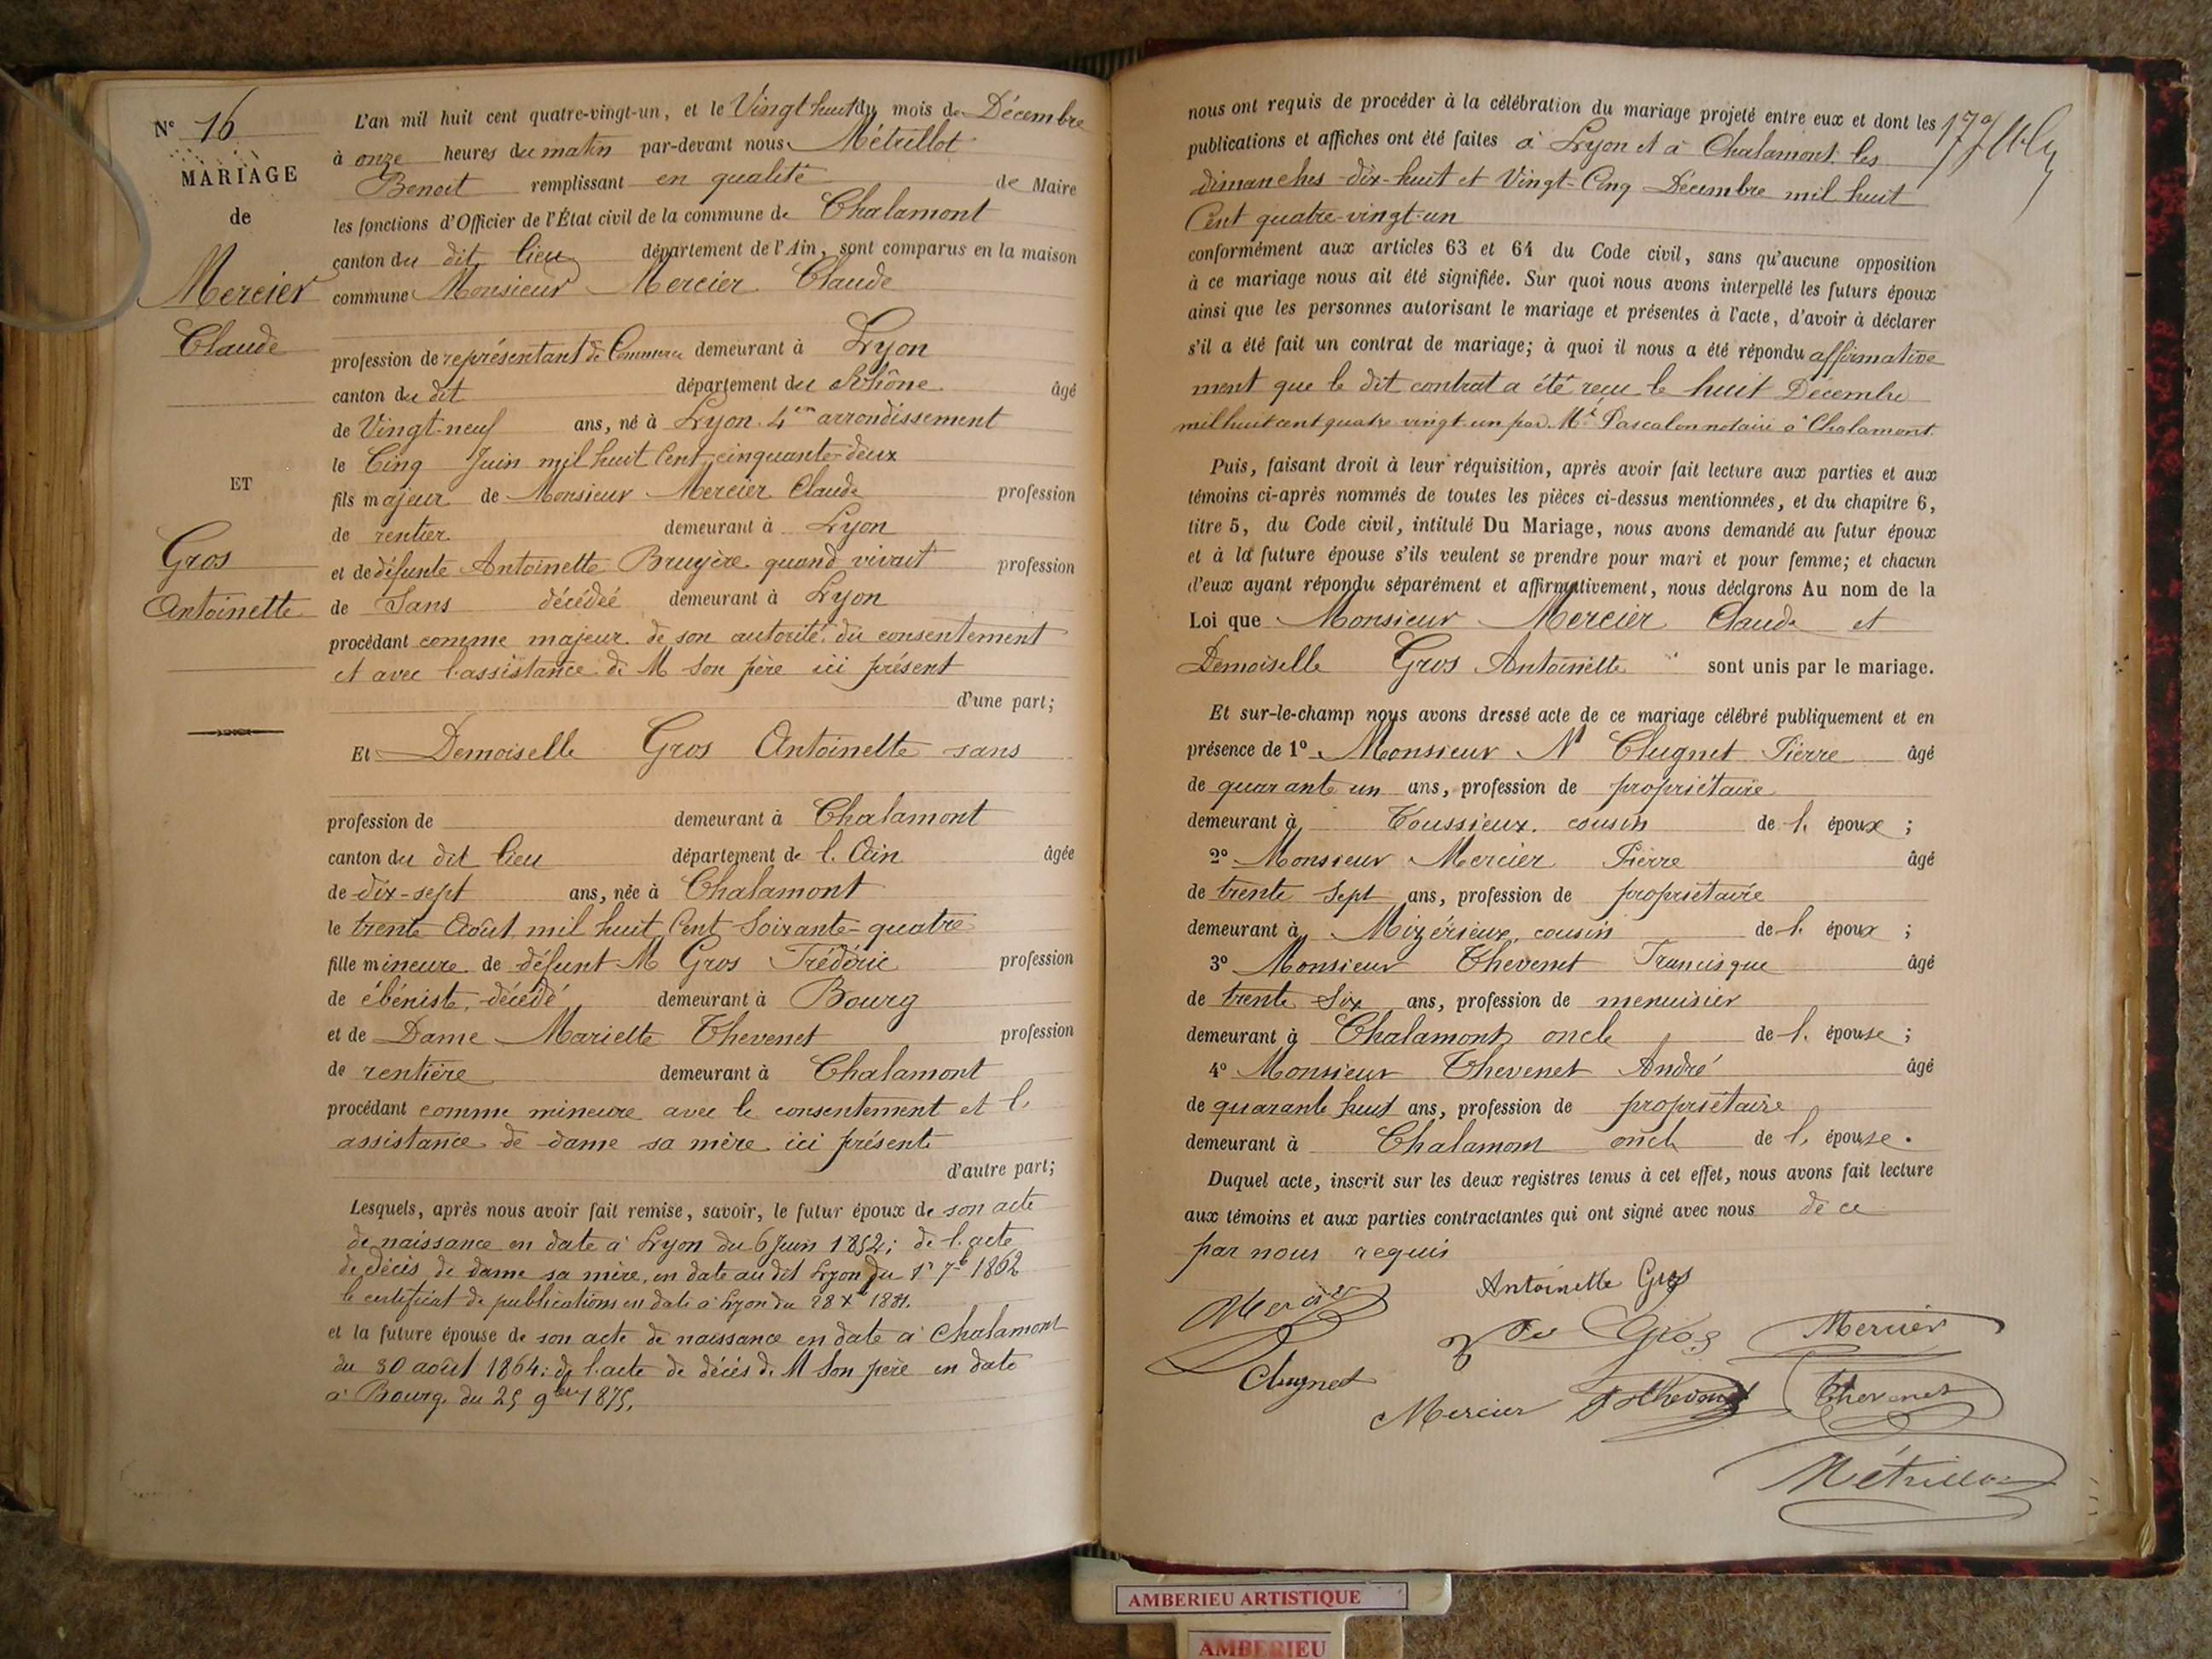 N° 16
MARIAGE
de
Mercier
Claude
ET
Gros
Antoinette
L'an mil huit cent quatre-vingt-un, et le Vingt huit du mois de Décembre
à onze heures du matin par-devant nous Métrillot
Benoit remplissant en qualité de Maire
les fonctions d'Officier de l'État civil de la commune de Chalamont
canton du dit lieu département de l'Ain, sont comparus en la maison
commune Monsieur Mercier Claude
profession de représentant de Commerce demeurant à Lyon
canton du dit département du Rhône âgé
de Vingt-neuf ans, né à Lyon 4em arrondissement
le Cinq Juin mil huit Cent cinquante-deux
fils majeur de Monsieur Mercier Claude profession
de rentier demeurant à Lyon
et de défunte Antoinette Bruyère quand vivait profession
de Sans décédée demeurant à Lyon
procédant comme majeur de son autorité du consentement
et avec l'assistance de M son père ici présent
d'une part;
Et Demoiselle Gros Antoinette sans
profession de demeurant à Chalamont
canton du dit lieu département de l'Ain âgée
de dix-sept ans, née à Chalamont
le trente Août mil huit Cent Soixante-quatre
fille mineure de défunt M Gros Frédéric profession
de ébéniste, décédé demeurant à Bourg
et de Dame Mariette Thevenet profession
de rentière demeurant à Chalamont
procédant comme mineure avec le consentement et l'
assistance de dame sa mère ici présente
d'autre part;
Lesquels, après nous avoir fait remise, savoir, le futur époux de son acte
de naissance en date à Lyon du 6 Juin 1852; de l'acte
de décès de dame sa mère, en date au dit Lyon du 1r 7e 1862
le certificat de publications en date à Lyon du 28 Xe 1881.
et la future épouse de son acte de naissance en date à Chalamont
du 30 août 1864: de l'acte de décès de M son père en date
à Bourg, du 25 9bre 1875.
nous ont requis de procéder à la célébration du mariage projeté entre eux et dont les
publications et affiches ont été faites à Lyon et à Chalamont les
dimanches dix-huit et Vingt-Cinq Décembre mil huit
Cent quatre-vingt-un
conformément aux articles 63 et 64 du Code civil, sans qu'aucune opposition
à ce mariage nous ait été signifiée. Sur quoi nous avons interpellé les futurs époux
ainsi que les personnes autorisant le mariage et présentes à l'acte, d'avoir à déclarer
s'il a été fait un contrat de mariage; à quoi il nous a été répondu affirmative
ment que le dit contrat a été reçu le huit Décembre
mil huit cent quatre vingt un par Me Pascalon notaire à Chalamont.
Puis, faisant droit à leur réquisition, après avoir fait lecture aux parties et aux
témoins ci-après nommés de toutes les pièces ci-dessus mentionnées, et du chapitre 6,
titre 5, du Code civil, intitulé Du Mariage, nous avons demandé au futur époux
et à la future épouse s'ils veulent se prendre pour mari et pour femme; et chacun
d'eux ayant répondu séparément et affirmativement, nous déclarons Au nom de la
Loi que Monsieur Mercier Claude et
Demoiselle Gros Antoinette sont unis par le mariage.
Et sur-le-champ nous avons dressé acte de ce mariage célébré publiquement et en
présence de 1° Monsieur Clugnet Pierre âgé
de quarante un ans, profession de propriétaire
demeurant à Toussieux cousin de l' époux ;
2° Monsieur Mercier Pierre âgé
de trente Sept ans, profession de propriétaire
demeurant à Mizérieux, cousin de l' époux ;
3° Monsieur Thevenet Francisque âgé
de trente Six ans, profession de menuisier
demeurant à Chalamont oncle de l' épouse ;
4° Monsieur Thevenet André âgé
de quarante huit ans, profession de propriétaire
demeurant à Chalamont oncle de l' épouse.
Duquel acte, inscrit sur les deux registres tenus à cet effet, nous avons fait lecture
aux témoins et aux parties contractantes qui ont signé avec nous de ce
par nous requis
Antoinette Gros
Mercier
Ve Gros
Mercier
Clugnet
Mercier
Thevenet
Thevenet
Métrillot
AMBERIEU ARTISTIQUE
AMBERIEU